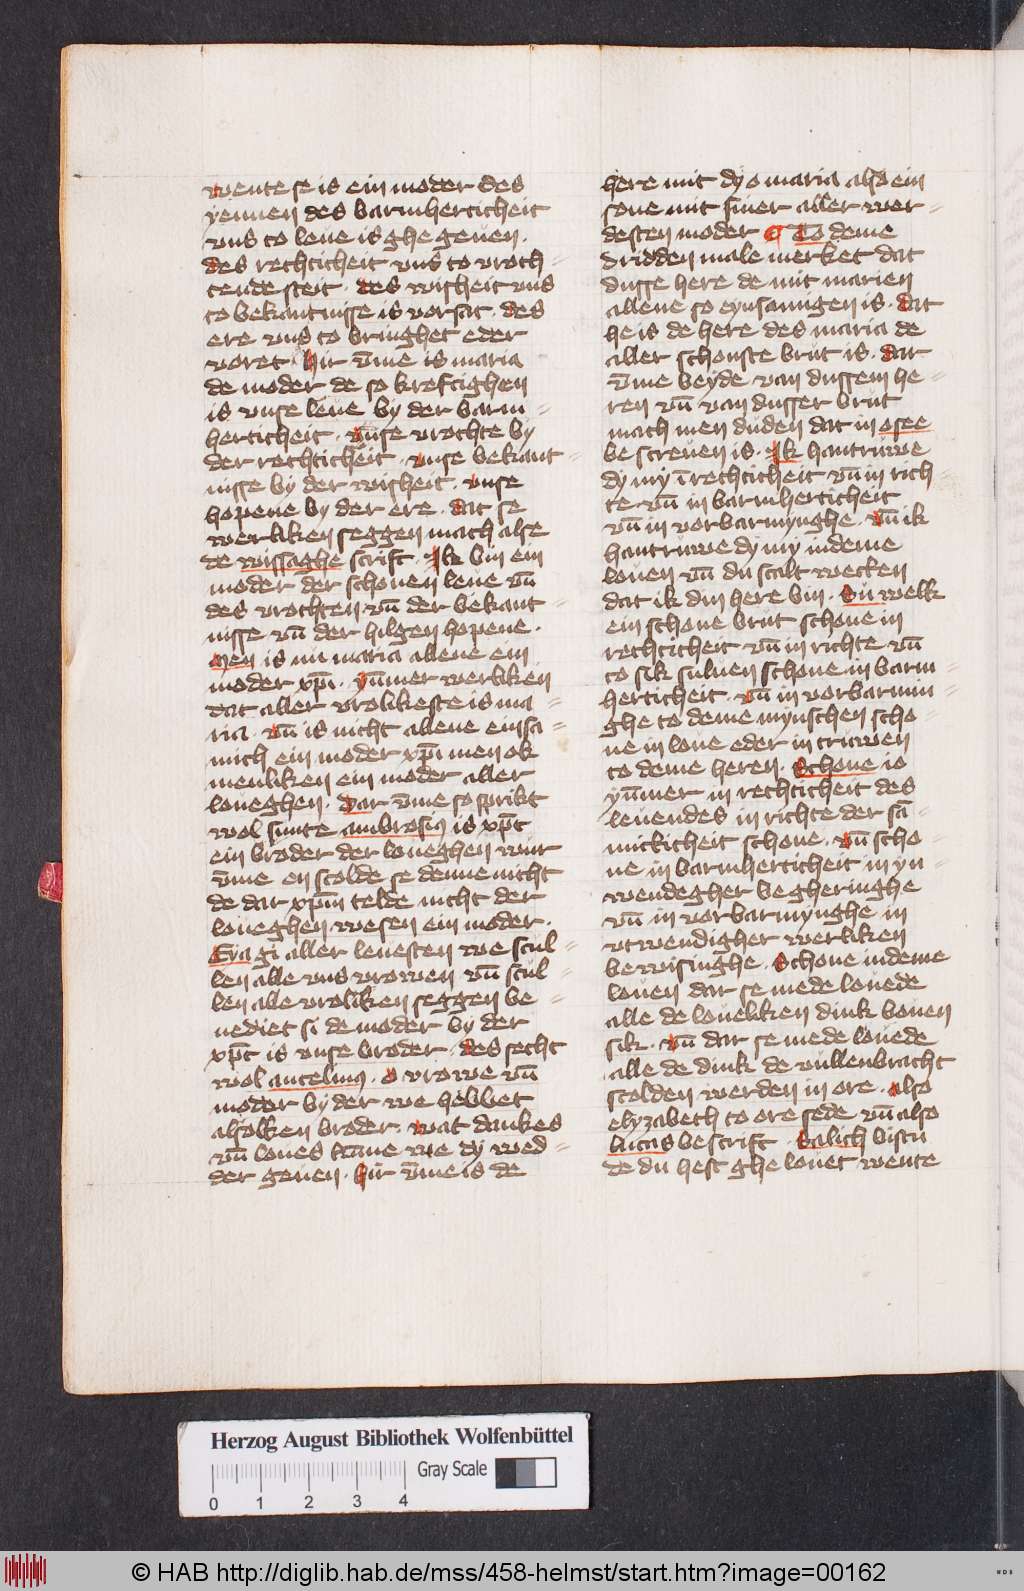 wente se is ein moder des
yennen des barmherticheit
vns to leue is ghe geuen.
des rechticheit vns to vroch-
tende steit. des wisheit vns
to bekantnisse is vorsat. des
ere vns to bringhet eder
voret. hir v̄me is maria
de moder de so kreftighen
is vnse leue by der barm-
herticheit. vnse vrochte by
der rechticheit. vnse bekant-
nisse by der wisheit. vnse
hopene by der ere. dat se
werliken seggen mach alse
de wissaghe scrift. Ik bin ein
moder der schonen leue vn̄
des vrochten vn̄ der bekant-
nisse vn̄ der hilgen hopene.
Men is nu maria allene ein
moder xp̄i. yūmer werliken
dat aller vrolikeste is ma-
ria. vn̄ is nicht allene einsa-
mich ein moder xp̄i men ok
menliken ein moder aller
loueghen. Dar v̄me so sprikt
wol sunte ambrosius is xp̄c
ein broder der loueghen wur
v̄me en scolde se denne nicht
de dar xp̄m telde nicht der
loueghen wesen ein moder.
Eya gi aller leuesten we scul-
len alle vns vrowen vn̄ scul-
len alle vroliken seggen be-
nediet si de moder by der
xp̄c is vnse broder. des secht
wol ancelmus. o vrowe vn̄
moder by der we hebbet
alsolken broder. wat dankes
vn̄ loues kūne we dy wed-
der geuen. Hir v̄me is de
here mit dy o maria also ein
sone mit siner aller wer-
desten moder ¶ To deme
dridden male merket dat
dusse here de mit marien
allene so eynsamigen is. dat
he is de here des maria de
aller schonste brut is. dar
v̄me beyde van dussem he-
ren vn̄ van dusser brut
mach men duden dat in osee
be screuen is. Ik hantruwe
dy my ī rechticheit vn̄ in rich
te vn̄ in barmherticheit
vn̄ in vorbarmynghe. vn̄ ik
hantruwe dy my in deme
louen vn̄ du scalt wecken
dat ik din here bin. Su welk
ein schone brut schone in
rechticheit vn̄ in richte vn̄
to sik suluen schone in barm-
herticheit. vn̄ in vorbarmin-
ghe to deme mynschen scho-
ne in loue eder in truwen
to deme heren. Schone io
yūmer in rechticheit des
leuendes in richte der sā-
mitticheit schone. vn̄ scho-
ne in barmherticheit in yn-
wendegher be gheringhe
vn̄ in vorbarmynghe in
vtwendigher werliken
be wisinghe. Schone in deme
louen dar se mede louede
alle de loueliken dink bouen
sik. vn̄ dar se mede louede
alle de dink de vullenbracht
scolden werden in ore. also
elyzabeth to ore sede vn̄ also
lucas be scrift. Salich bistu
de du hest ghe louet wente
Herzog August Bibliothek Wolfenbüttel
Gray Scale
0 1 2 3 4
© HAB http://diglib.hab.de/mss/458-helmst/start.htm?image=00162